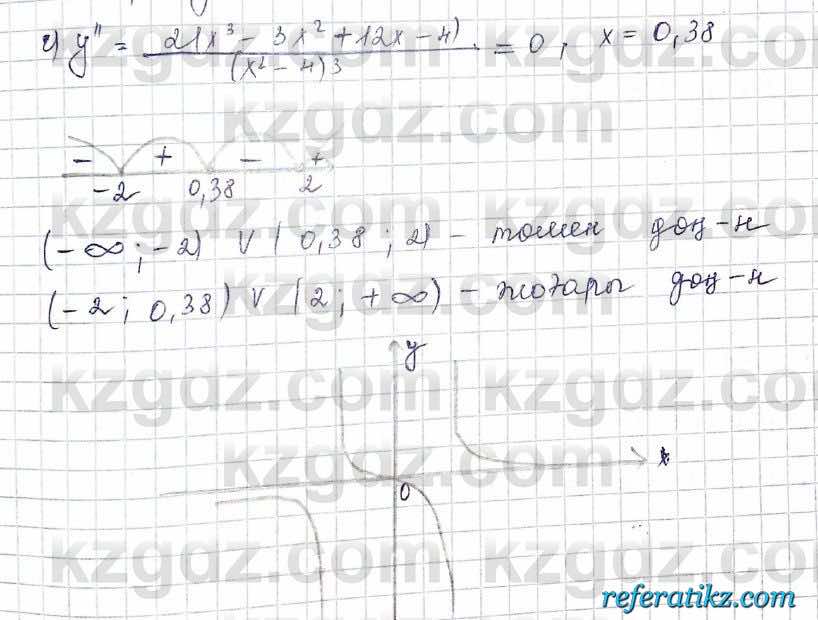 г) y'' = 2(x³ - 3x² + 12x - 4) / (x² - 4)³ = 0, x = 0,38
- + - +
-2 0,38 2
(-∞; -2) ∪ (0,38; 2) - төмен дөң-к
(-2; 0,38) ∪ (2; +∞) - жоғары дөң-к
y
x
0
kzgdz.com
referatikz.com